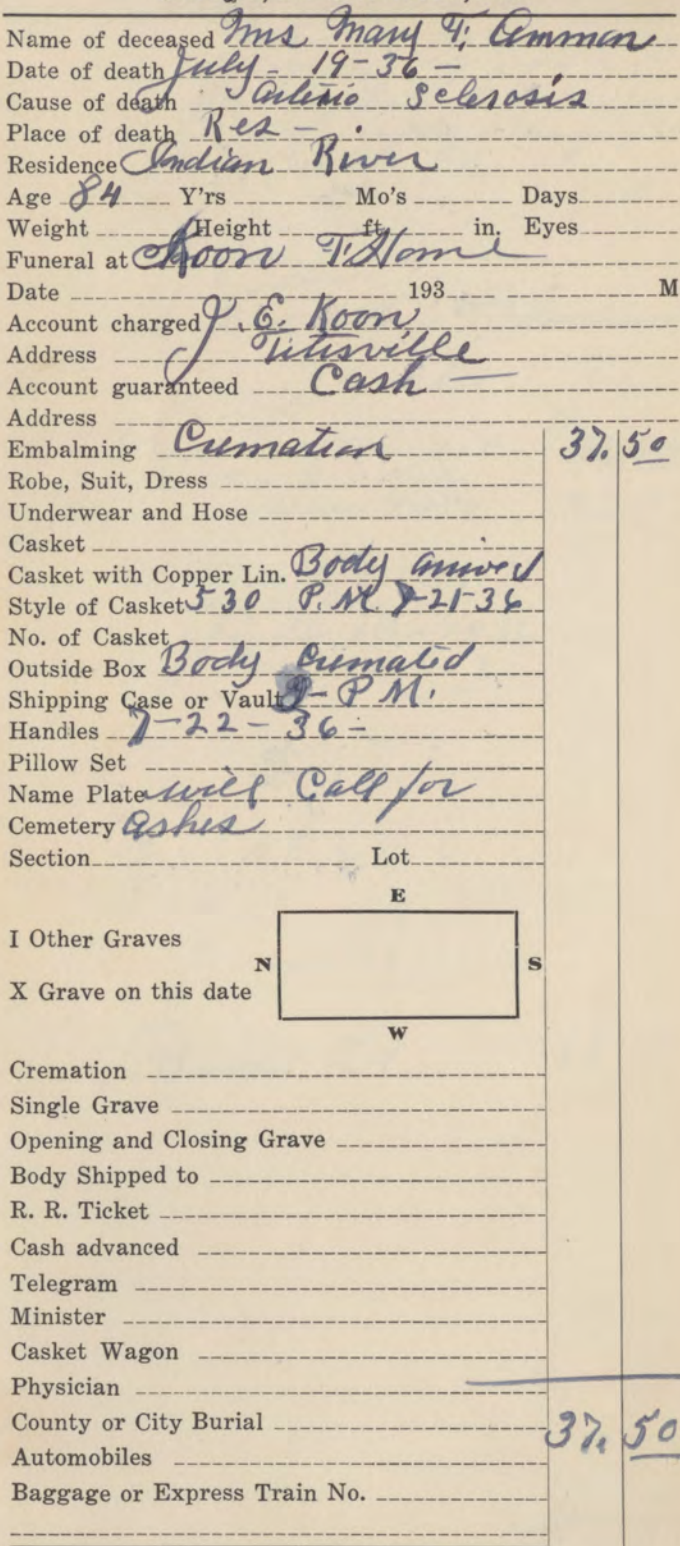 Name of deceased Mrs Mary F. Ammon
Date of death July - 19-36 -
Cause of death Arterio Sclerosis
Place of death Res - .
Residence Indian River
Age 84 Y'rs Mo's Days
Weight Height ft. in. Eyes
Funeral at Koon F. Home
Date 193 M
Account charged J. E. Koon
Address Titusville
Account guaranteed Cash -
Address
Embalming Cremation 37. 50
Robe, Suit, Dress
Underwear and Hose
Casket
Casket with Copper Lin. Body arrived
Style of Casket 5 30 P.M 7-21-36
No. of Casket
Outside Box Body Cremated
Shipping Case or Vault - P M.
Handles 7-22-36-
Pillow Set
Name Plate will Call for
Cemetery Ashes
Section Lot
E
I Other Graves
N S
X Grave on this date
W
Cremation
Single Grave
Opening and Closing Grave
Body Shipped to
R. R. Ticket
Cash advanced
Telegram
Minister
Casket Wagon
Physician
County or City Burial 37. 50
Automobiles
Baggage or Express Train No.